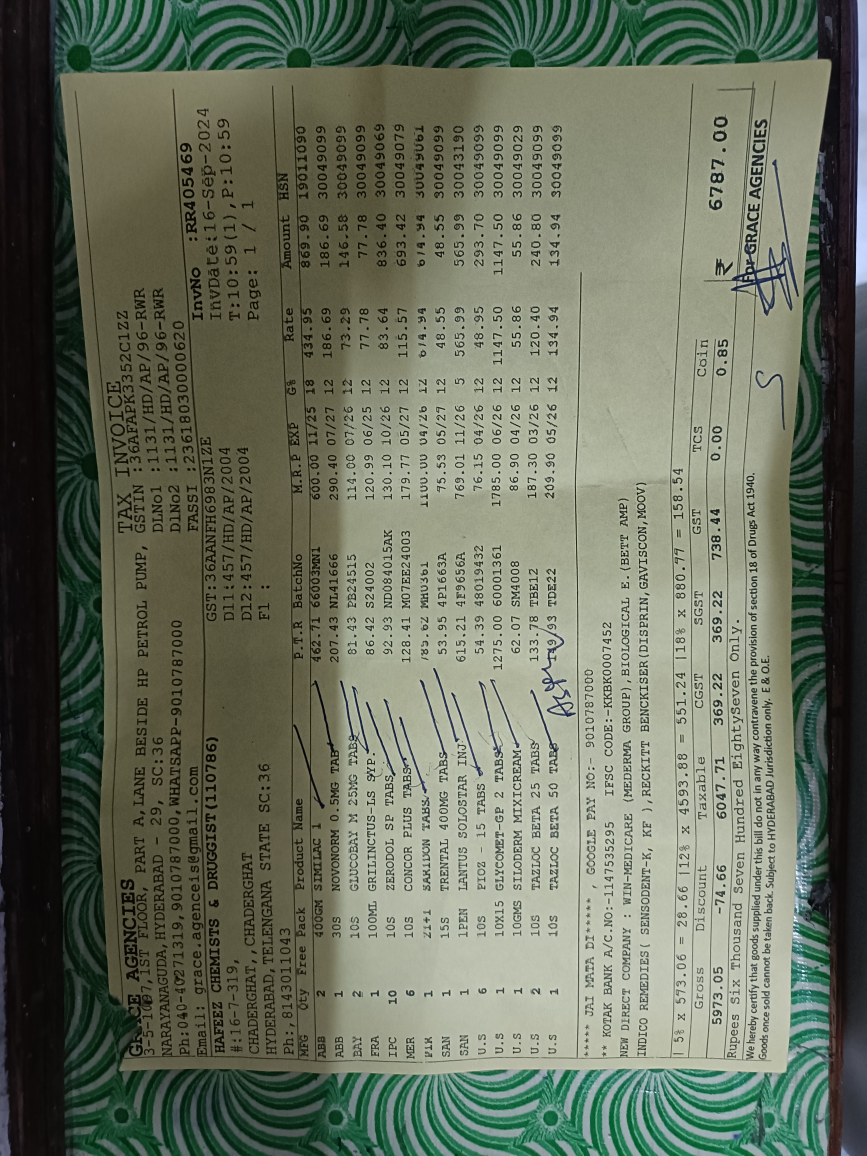 GRACE AGENCIES
3-5-1097,1ST FLOOR, PART A,LANE BESIDE HP PETROL PUMP,
NARAYANAGUDA,HYDERABAD - 29, SC:36
Ph:040-40271319,9010787000,WHATSAPP-9010787000
Email: grace.agenceis@gmail.com
TAX INVOICE
GSTIN :36AFAPK3352C1ZZ
DLNo1 :1131/HD/AP/96-RWR
DlNo2 :1131/HD/AP/96-RWR
FASSI :23618030000620
HAFEEZ CHEMISTS & DRUGGIST(110786)
#:16-7-319,
CHADERGHAT,,CHADERGHAT
HYDERABAD,TELENGANA STATE SC:36
Ph:,8143011043
GST:36AANFH6983N1ZE
D11:457/HD/AP/2004
D12:457/HD/AP/2004
Fl :
InvNo :RR405469
InvDate:16-Sep-2024
T:10:59(1),P:10:59
Page: 1 / 1
MFG Qty Free Pack Product Name P.T.R BatchNo M.R.P EXP G% Rate Amount HSN
ABB 2 400GM SIMILAC 1 462.71 66003MN1 600.00 11/25 18 434.95 869.90 19011090
ABB 1 30S NOVONORM 0.5MG TAB 207.43 NL41666 290.40 07/27 12 186.69 186.69 30049099
BAY 2 10S GLUCOBAY M 25MG TABS 81.43 PB24515 114.00 07/26 12 73.29 146.58 30049099
FRA 1 100ML GRILINCTUS-LS SYP 86.42 S24002 120.99 06/25 12 77.78 77.78 30049099
IPC 10 10S ZERODOL SP TABS 92.93 ND084015AK 130.10 10/26 12 83.64 836.40 30049069
MER 6 10S CONCOR PLUS TABS 128.41 M07EE24003 179.77 05/27 12 115.57 693.42 30049079
1 SARIDON TABS 1100.00 04/26 12 30049061
SAN 1 15S TRENTAL 400MG TABS 53.95 4P1663A 75.53 05/27 12 48.55 48.55 30049099
SAN 1 1PEN LANTUS SOLOSTAR INJ 615.21 4F9656A 769.01 11/26 5 565.99 565.99 30043190
U.S 6 10S PIOZ - 15 TABS 54.39 48019432 76.15 04/26 12 48.95 293.70 30049099
U.S 1 10X15 GLYCOMET-GP 2 TABS 1275.00 60001361 1785.00 06/26 12 1147.50 1147.50 30049099
U.S 1 10GMS SILODERM MIXICREAM 62.07 SM4008 86.90 04/26 12 55.86 55.86 30049029
U.S 2 10S TAZLOC BETA 25 TABS 133.78 TBE12 187.30 03/26 12 120.40 240.80 30049099
U.S 1 10S TAZLOC BETA 50 TABS 149.93 TDE22 209.90 05/26 12 134.94 134.94 30049099
***** JAI MATA DI***** , GOOGLE PAY NO:- 9010787000
** KOTAK BANK A/C.NO:-1147535295 IFSC CODE:-KKBK0007452
NEW DIRECT COMPANY : WIN-MEDICARE (MEDERMA GROUP),BIOLOGICAL E.(BETT AMP)
INDICO REMEDIES( SENSODENT-K, KF ),RECKITT BENCKISER(DISPRIN,GAVISCON,MOOV)
| 5% x 573.06 = 28.66 |12% x 4593.88 = 551.24 |18% x 880.77 = 158.54
Gross Discount Taxable CGST SGST GST TCS Coin
5973.05 -74.66 6047.71 369.22 369.22 738.44 0.00 0.85
₹ 6787.00
Rupees Six Thousand Seven Hundred EightySeven Only.
We hereby certify that goods supplied under this bill do not in any way contravene the provision of section 18 of Drugs Act 1940.
Goods once sold cannot be taken back. Subject to HYDERABAD Jurisdiction only. E & O.E.
For GRACE AGENCIES